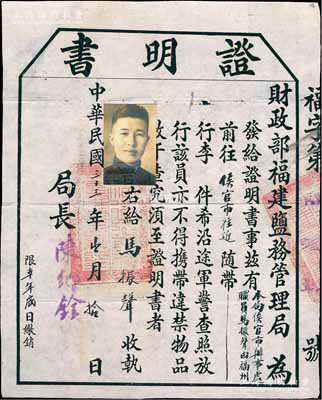 證明書
福字第 號
財政部福建鹽務管理局 為
發給證明書事茲有
本局侯官市辦事處
職員馬振聲由福州
前往侯官市往返隨帶
行李 件希沿途軍警查照放
行該員亦不得攜帶違禁物品
致干查究須至證明書者
右給馬振聲收執
中華民國三十三年 月拾 日
局長
限 年 底日繳銷